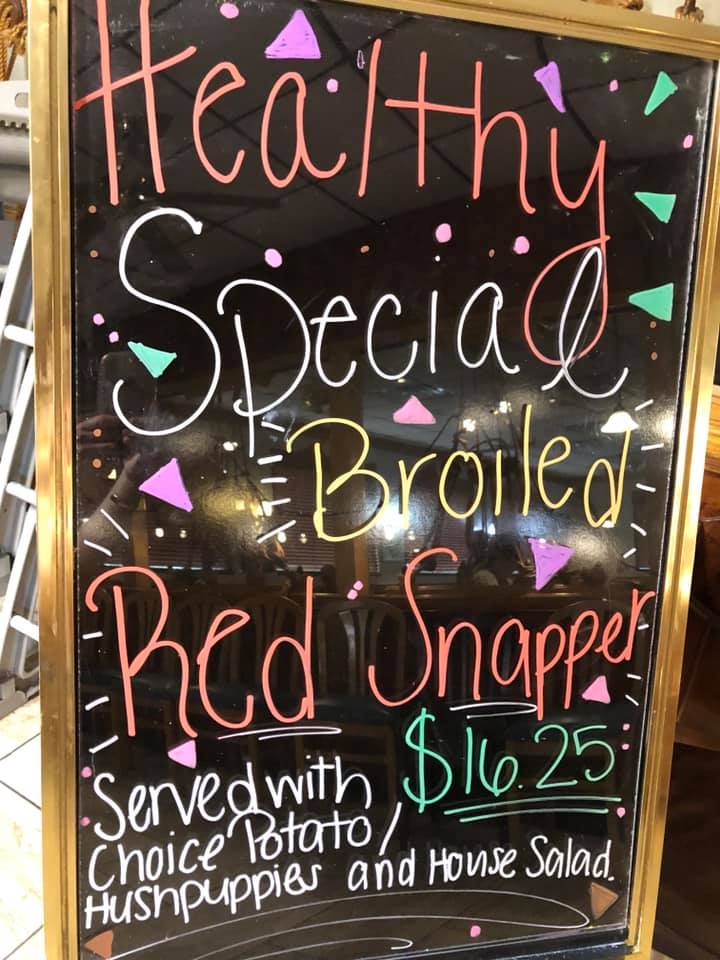 Healthy
Special
Broiled
Red Snapper
$16.25
Served with
Choice Potato/
Hushpuppies and House Salad.